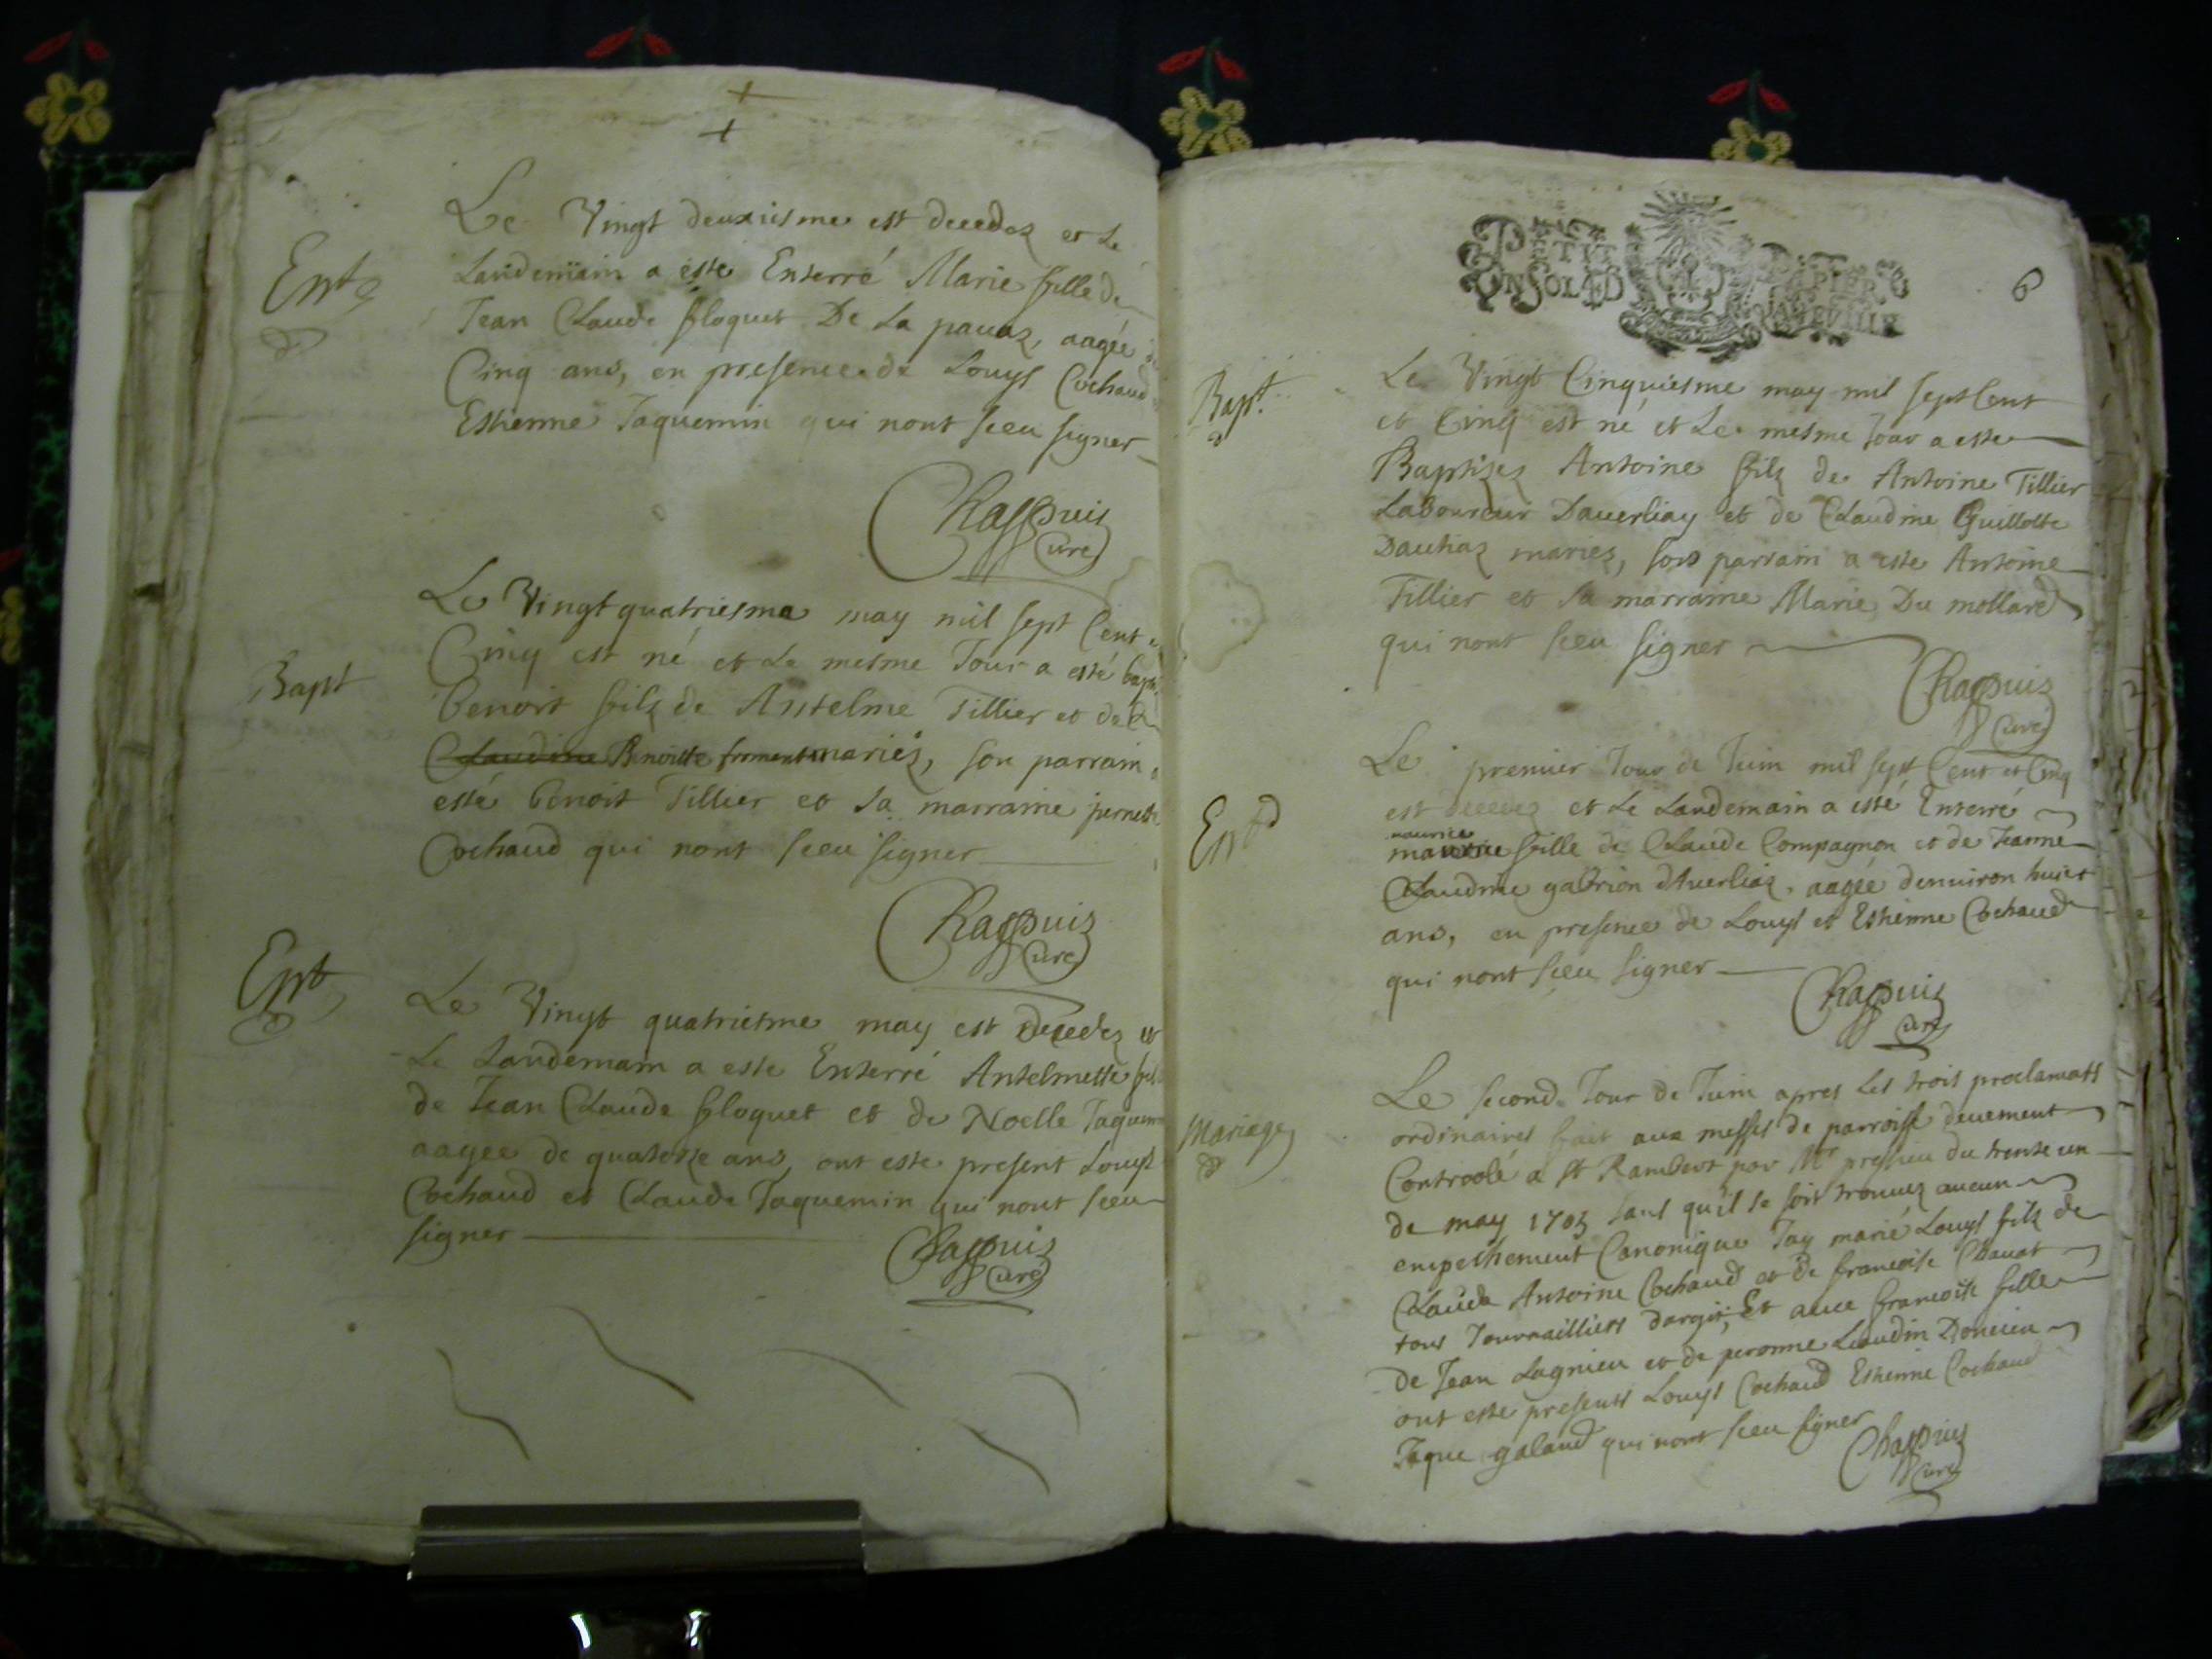 Le Vingt deuxiesme est decedez et Le
Ent
Landemain a este Enterré Marie fille de
Jean Claude floquet De La pauaz, aagée
Cinq ans, en presence de Louys Cochaud
Esthenne Jaquemin qui nont sceu signer
Chappuis
Curé
Le Vingt quatriesme may mil sept Cent
Cinq est né et Le mesme Jour a esté bapt
Bapt
benoit filz de Antelme Tillier et de
Claudine Benoitte froment mariez, son parrain
esté benoit Tillier et sa marraine pernette
Cochaud qui nont sceu signer
Chappuis
Curé
Ent
Le Vingt quatriesme may est decedez et
Le Landemain a este Enterré Antelmette
de Jean Claude floquet et de Noelle Jaquem
aagee de quatorze ans, ont este present Louys
Cochaud et Claude Jaquemin qui nont sceu
signer
Chappuis
Curé
PETIT PAPIER
6
Le Vingt Cinquiesme may mil sept Cent
Bapt.
et Cinq est né et Le mesme Jour a este
Baptisez Antoine filz de Antoine Tillier
Laboureur Dauerliay et de Claudine Guillotte
Dauhaz mariez, son parrain a este Antoine
Tillier et sa marraine Marie Du mollard
qui nont sceu signer
Chappuis
Curé
Le premier Jour de Juin mil sept Cent et Cinq
est decedez et Le Landemain a esté Enterré
Ent
maurice
fille de Claude Compagnon et de Jeanne
Claudine gabrion dAuerliaz, aagée denuiron huict
ans, en presence de Louys et Esthenne Cochaud
qui nont sceu signer
Chappuis
Curé
Le second Jour de Juin apres Les trois proclamats
Mariage
ordinaires fait aux messes de parroisse deuement
Controolé a St Rambert par Mr pressieu du trente un
de may 1705 sans qu'il se soit trouuez aucun
empeschement Canonique Jay marié Louys filz de
Claude Antoine Cochaud et de francoise Chauat
tous Journailliers dargis, Et auec francoise fille
de Jean Lagnieu et de peronne Liaudin Doncieu
ont este presents Louys Cochaud Esthenne Cochaud
Jaque galand qui nont sceu signer
Chappuis
Curé